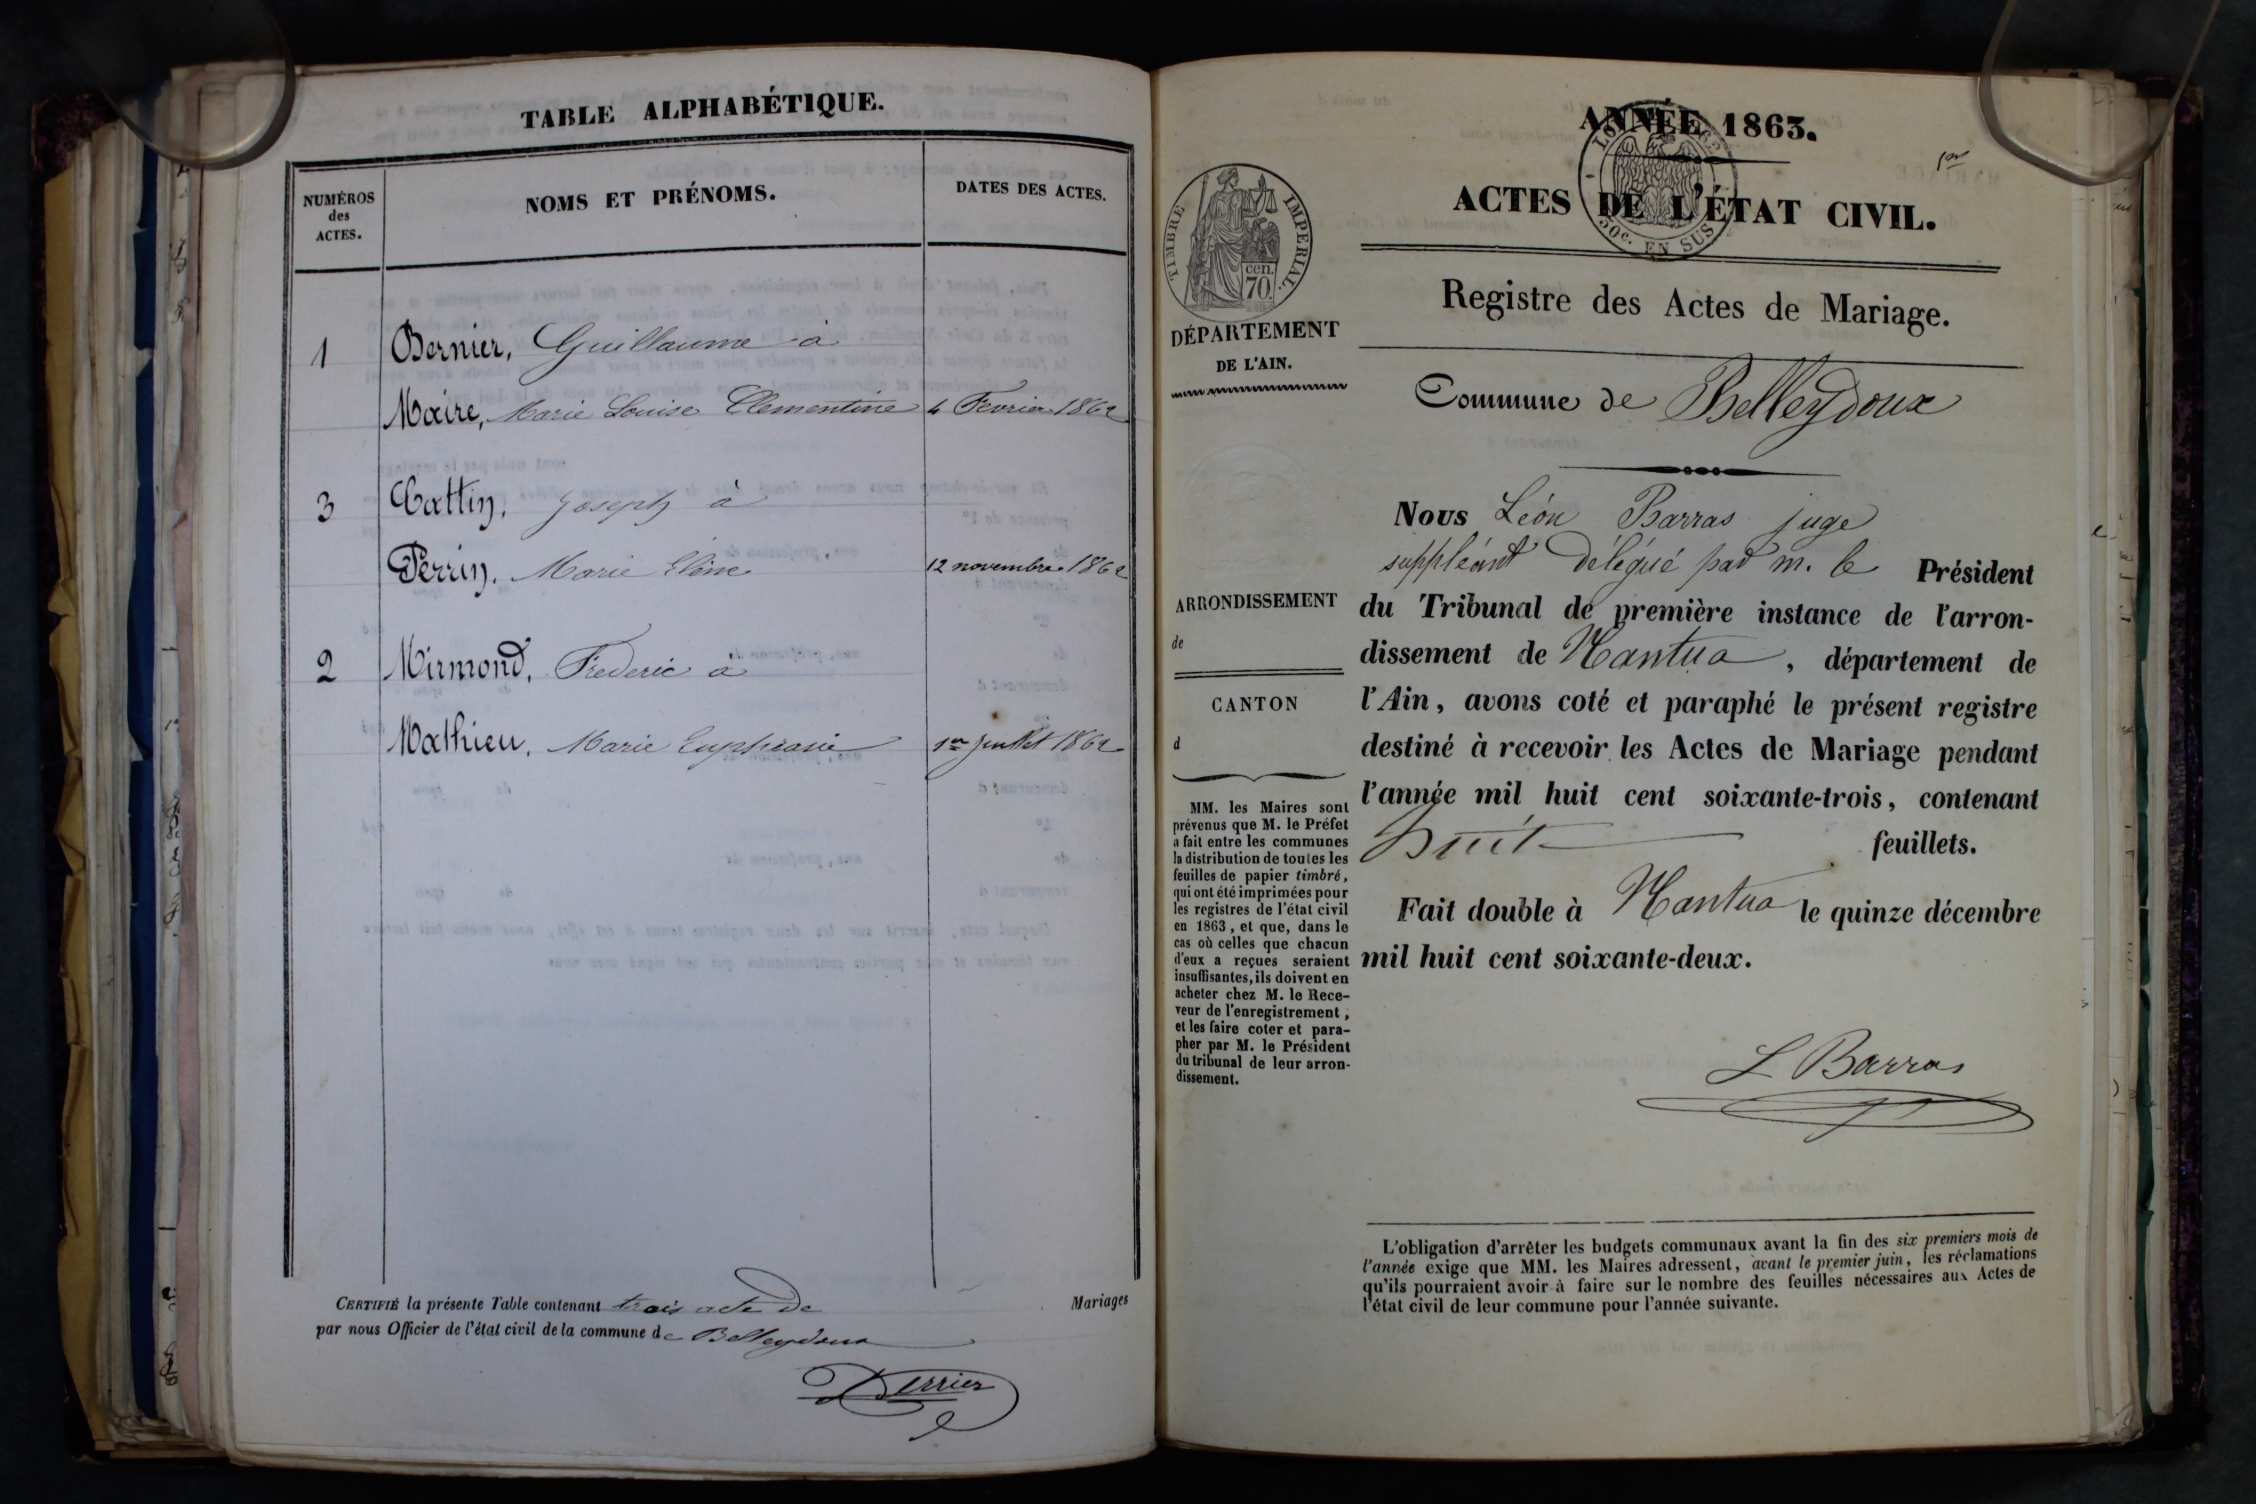 TABLE ALPHABÉTIQUE.
NUMÉROS
des
ACTES.
NOMS ET PRÉNOMS.
DATES DES ACTES.
1 Bernier, Guillaume à
Maire, Marie Louise Clementine 4 Fevrier 1862
3 Cattin, Joseph à
Perrin, Marie Elène 12 novembre 1862
2 Mirmond, Frederic à
Mathieu, Marie Euphrasie 1er Juillet 1862
CERTIFIÉ la présente Table contenant trois acte de Mariages
par nous Officier de l'état civil de la commune de Belleydoux
ANNÉE 1863.
1er
ACTES DE L'ÉTAT CIVIL.
30c. EN SUS
TIMBRE IMPERIAL.
cen.
70.
Registre des Actes de Mariage.
DÉPARTEMENT
DE L'AIN.
Commune de Belleydoux
Nous Léon Barras juge
suppléant délégué par m. le Président
du Tribunal de première instance de l'arron-
dissement de Nantua, département de
l'Ain, avons coté et paraphé le présent registre
destiné à recevoir les Actes de Mariage pendant
l'année mil huit cent soixante-trois, contenant
huit feuillets.
Fait double à Nantua le quinze décembre
mil huit cent soixante-deux.
L Barras
ARRONDISSEMENT
de
CANTON
d
MM. les Maires sont
prévenus que M. le Préfet
a fait entre les communes
la distribution de toutes les
feuilles de papier timbré,
qui ont été imprimées pour
les registres de l'état civil
en 1863, et que, dans le
cas où celles que chacun
d'eux a reçues seraient
insuffisantes, ils doivent en
acheter chez M. le Rece-
veur de l'enregistrement,
et les faire coter et para-
pher par M. le Président
du tribunal de leur arron-
dissement.
L'obligation d'arrêter les budgets communaux avant la fin des six premiers mois de
l'année exige que MM. les Maires adressent, avant le premier juin, les réclamations
qu'ils pourraient avoir à faire sur le nombre des feuilles nécessaires aux Actes de
l'état civil de leur commune pour l'année suivante.